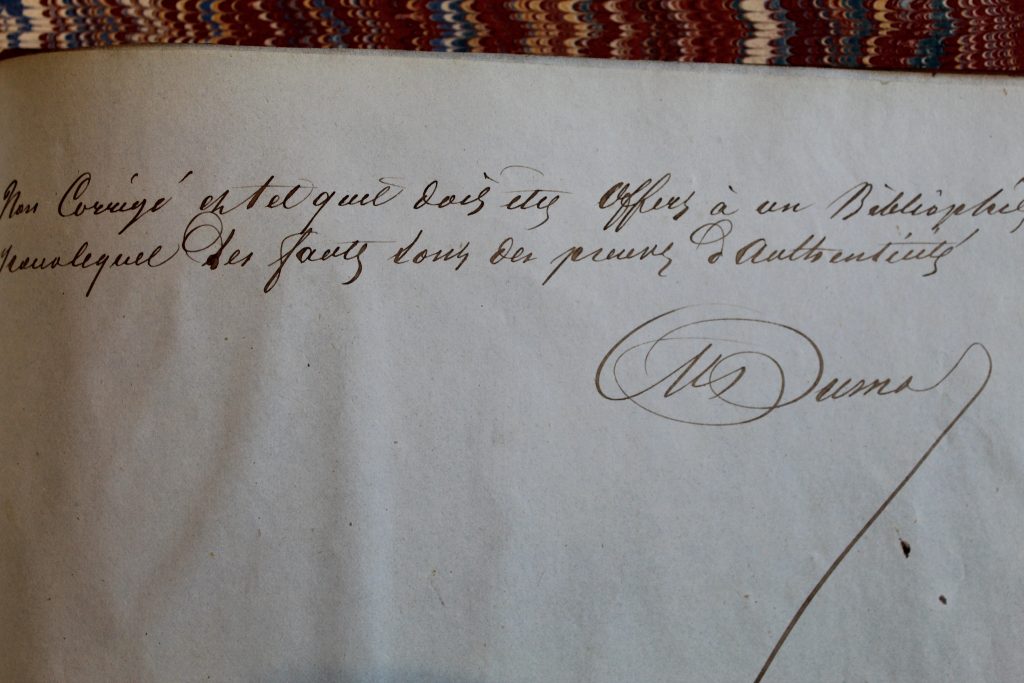 Non Corrigé et tel quil doit etre offert à un Bibliophile
pour lequel les fautes sont des preuves d'authenticité
Alx Dumas